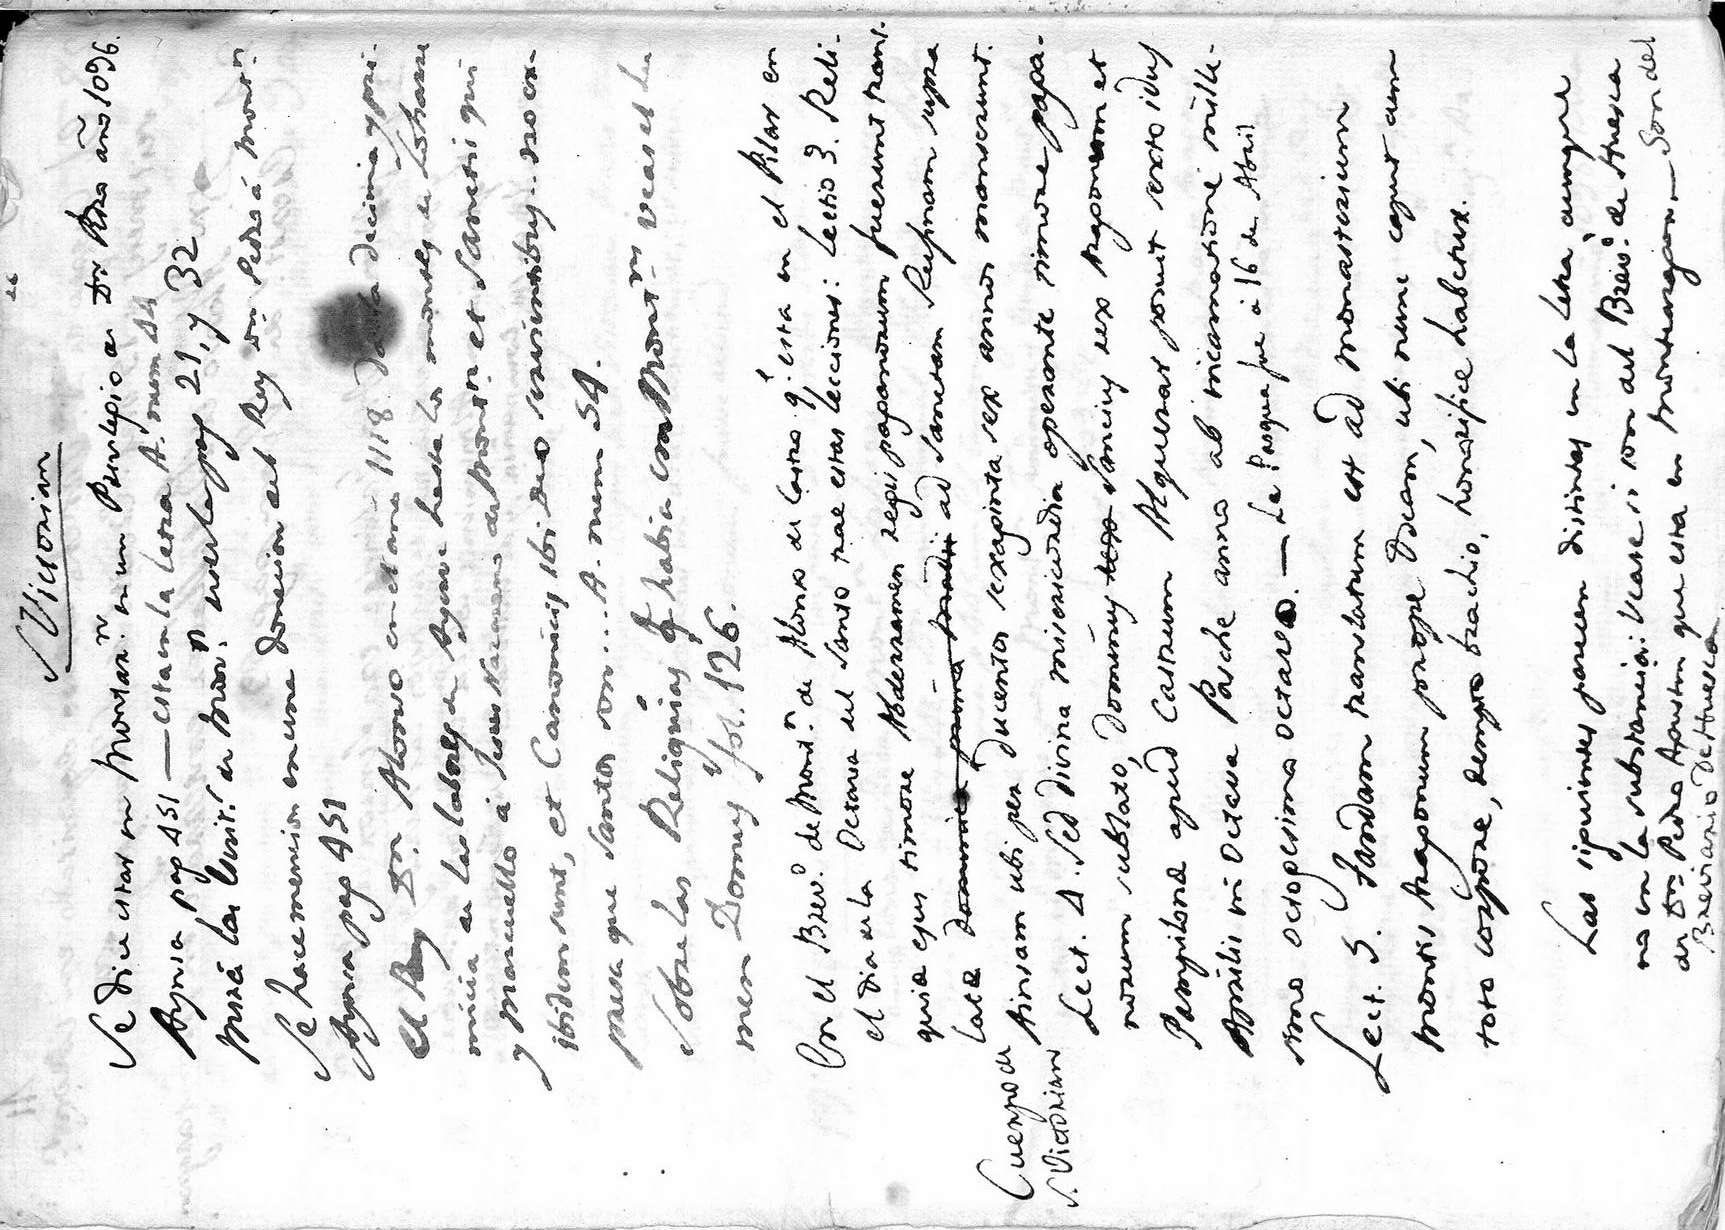 S. Victorian
Se dice estar en Montar.n en un Privilegio de Dn Pedro año 1096.
Aynsa pag 451 — esta en la letra A. num 44
Murzà las Constit.s de Mon.n en esta pag 21, y 32
Se hace mencion en una Donacion del Rey Dn Pedro à Mont.n
Aynsa pag 451
El Rey Dn Alonso en el año 1118 decima y pri-
micia de las labores de Ayerve hasta los montes de Lobarre
y Marcuello à Jesus Nazareno de Mont.n et Sanctis qui
ibidem sunt, et Canonicis ibi Deo servientibus.. no ex-
presa que Santos son... A. num 54.
Sobre las Reliquias q.e habia en Mont.n vease el Lu-
men Domus fol. 126.
En el Brev.o de Mont.n de Alonso de Castro q.e esta en el Pilar en
el dia de la Octava del Santo trae estas lecciones: Lectio 3. Reli-
quie ejus timore Abderramen regis paganorum fuerunt trans-
late dominica prima ad Sanctam Reginam supra
Ainsam ubi per Ducentos sexaginta sex annos manserunt.
Cuerpo de
S. Victorian
Lect. 4. Sed divina misericordia operante timore paga-
norum sublato, Dominus Sancius rex Aragonum et
Pampilone apud Castrum Alquezar posuit sexto idus
Aprilis in Octava Pasche anno ab incarnatione mille-
simo octogesimo octavo. — La Pasqua fue à 16 de Abril
Lect. 5. Tandem translatum est ad monasterium
Montis Aragonum prope Oscam, ubi nunc caput cum
toto corpore, dempto brachio, honorifice habetur.
Las siguientes parecen distintas en la letra aunque
no en la substancia: Vease si son del Brev.o de Huesca
de Dn Pedro Agustin que esta en Montearagon — Son del
Breviario de Huesca